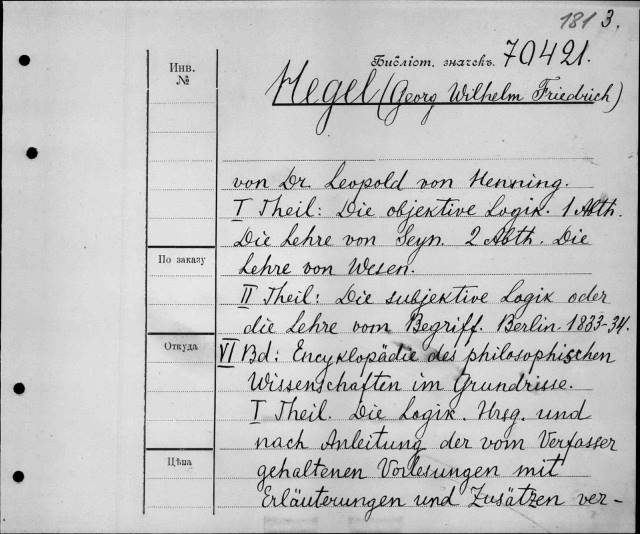 181 3.
Библіот. значекъ. 70421.
Инв.
№
Hegel (Georg Wilhelm Friedrich)
von Dr. Leopold von Henning.
I Theil: Die objektive Logik. 1 Abth.
Die Lehre von Seyn. 2 Abth. Die
По заказу
Lehre von Wesen.
II Theil: Die subjektive Logik oder
die Lehre vom Begriff. Berlin 1833-34.
Откуда
VI Bd: Encyklopädie des philosophischen
Wissenschaften im Grundrisse.
I Theil. Die Logik. Hrsg. und
nach Anleitung der vom Verfasser
Цѣна
gehaltenen Vorlesungen mit
Erläuterungen und Zusätzen ver-